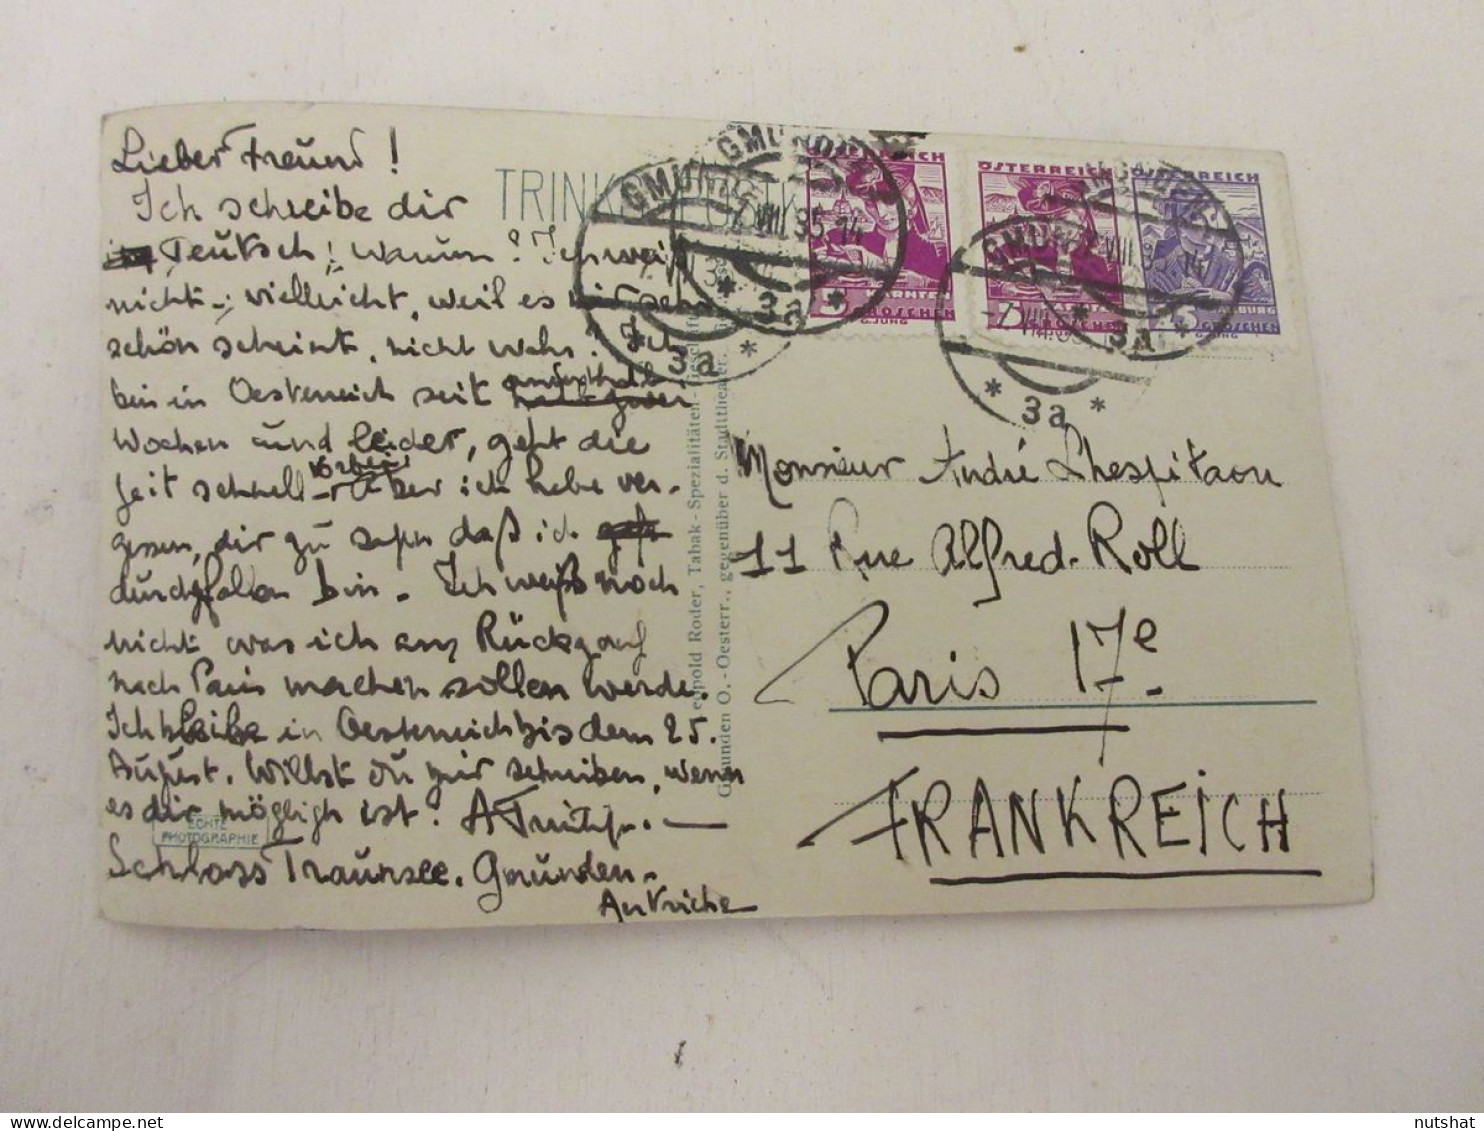 Lieber Freund!
Ich schreibe dir
Teutsch; warum? Ich weiß
nicht; vielleicht, weil es mir sehr
schön scheint, nicht wahr? Ich
bin in Oesterreich seit anderthalb
Wochen und leider, geht die
Zeit schnell vorbei. Aber ich habe ver-
gessen, dir zu sagen daß ich
durchgefallen bin. Ich weiß noch
nicht was ich am Rückgang
nach Paris machen sollen werde.
Ich bleibe in Oesterreich bis dem 25.
August. Willst du mir schreiben, wenn
es dir möglich ist?
Schloss Traunsee. Gmunden.
Autriche
ECHTE
PHOTOGRAPHIE
TRINK
Leopold Roder, Tabak-Spezialitäten-
Gmunden O.-Oesterr., gegenüber d. Stadttheater.
GMUNDEN
VIII 35 14
3a
GMUNDEN
3a
ÖSTERREICH
KÄRNTEN
GROSCHEN
G.JUNG
ÖSTERREICH
GROSCHEN
ÖSTERREICH
5
GROSCHEN
GMUNDEN
3a
3a
Monsieur André Lhospitaou
11 Rue Alfred-Roll
Paris 17e
FRANKREICH
nutshat